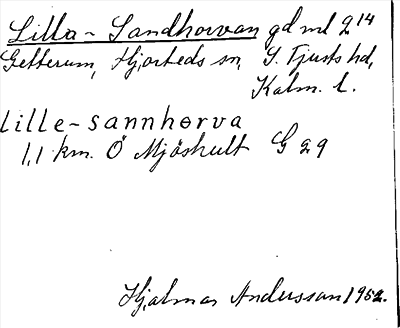 Lilla-Sandhorvan gd ml 2¹⁴
Getterum, Hjorteds sn, S. Tjusts hd,
Kalm. l.
lille-sannhørva
1,1 km. Ö Mjöshult G 29
Hjalmar Andersson 1952.